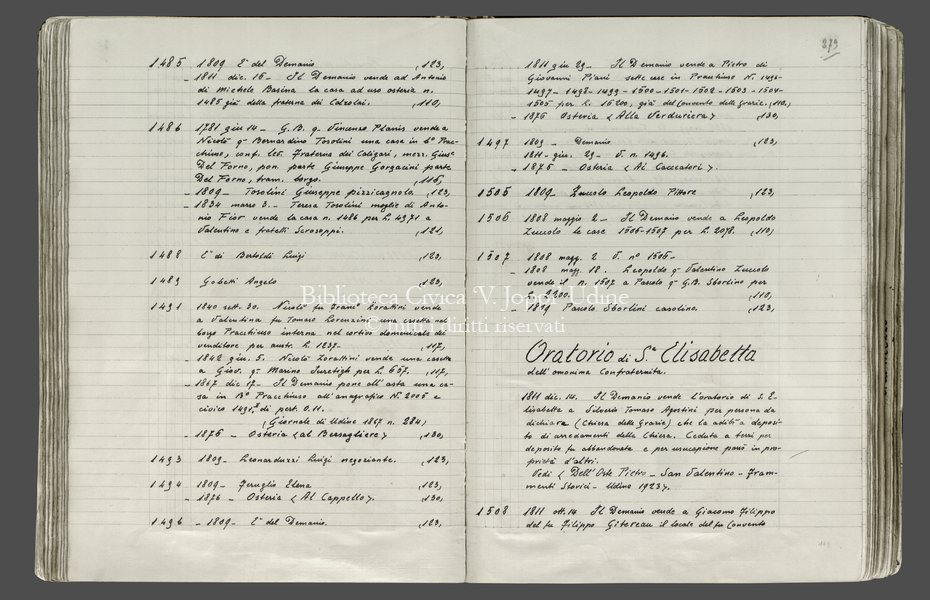 1485 1809 È del Demanio ,123,
- 1811 dic. 16 - Il Demanio vende ad Antonio
di Michele Basina la casa ad uso osteria n.
1485 già della fraterna dei Calzolai. ,110,
1486 1781 giu 14 - G.B. q. Vincenzo Planis vende a
Nicolò q. Bernardino Tosolini una casa in b° Prac-
chiuso, conf. lev. fraterna dei Caligari, mezz. Gius°
Del Forno, pon. parte Giuseppe Gorgacini parte
Del Forno, tram. borgo. ,116,
- 1809 - Tosolini Giuseppe pizzicagnolo ,123,
- 1834 marzo 3. - Teresa Tosolini moglie di Anto-
nio Fior vende la casa n. 1486 per L. 4971 a
Valentino e fratelli Scrosoppi. ,121,
1488 È di Bertoldi Luigi ,123,
1489 Gobetti Angelo ,123,
1491 1840 sett. 30. Nicolò fu Franc° Zorattini vende
a Valentina fu Tomaso Lorenzini una casetta nel
borgo Pracchiuso interna nel cortivo domenicale del
venditore per austr. L. 1237- ,117,
- 1842 giu. 5. Nicolò Zorattini vende una casetta
a Giov. q. Marino Juretigh per L. 657. ,117,
- 1867 dic 17 - Il Demanio pone all'asta una ca-
sa in B° Pracchiuso all'anagrafico N. 2005 e
civico 1491, di pert. 0.11.
(Giornale di Udine 1867 n. 284)
- 1876 - Osteria <al Bersagliere> ,130,
1493 1809 - Leonarduzzi Luigi negoziante. ,123,
1494 1809 - Feruglio Elena ,123,
- 1876 - Osteria <Al Cappello>. ,130,
1496 - 1809 - È del Demanio. ,123,
379
1811 giu 29 - Il Demanio vende a Pietro di
Giovanni Piani sette case in Pracchiuso N. 1496-
1497 - 1498 - 1499 - 1500 - 1501 - 1502 - 1503 - 1504 -
1505 per L. 15200, già del Convento delle Grazie. ,110,
- 1876 Osteria <Alla Verduriera> ,130,
1497 1809 - Demanio ,123,
1811 - giu. 29 - V. n. 1496.
- 1876 - Osteria <Ai Cacciatori>.
1505 1809 - Zuccolo Leopoldo Pittore ,123,
1506 1808 maggio 2 - Il Demanio vende a Leopoldo
Zuccolo le case 1506-1507 per L. 2078. ,110,
1507 1808 magg. 2 V. n° 1506 -
- 1808 magg. 18. Leopoldo q. Valentino Zuccolo
vende il n. 1507 a Pascolo q. G.B. Sbortino per
L. 2200. ,110,
- 1809 Pascolo Sbortini casolino. ,123,
Biblioteca Civica V. Joppi Udine
© tutti i diritti riservati
Oratorio di S. Elisabetta
dell'omonima Confraternita.
1811 dic. 14. Il Demanio vende l'oratorio di S. E-
lisabetta a Silverio Tomaso Agostini per persona da
dichiarare (Chiesa delle Grazie) che la adibì a deposi-
to di arredamenti della Chiesa. Ceduta a terzi per
deposito fu abbandonata e per usucapione passò in pro-
prietà d'altri.
Vedi <Dell'Oste Pietro - San Valentino - Fram-
menti Storici - Udine 1923>.
1508 1811 ott. 14 Il Demanio vende a Giacomo Filippo
del fu Filippo Gitereau il locale del fu Convento